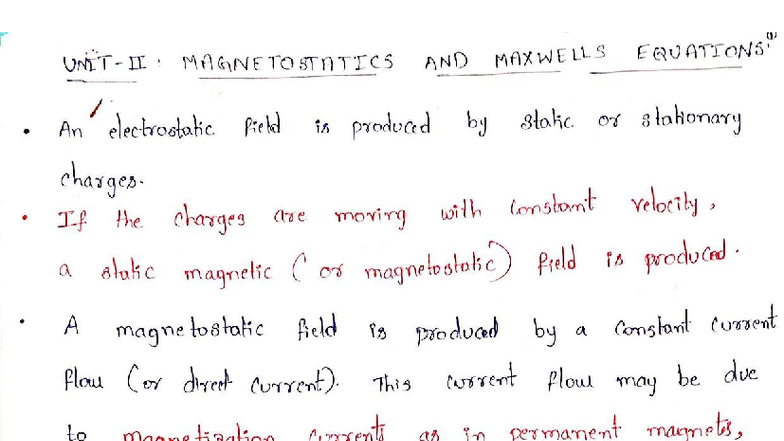 UNIT-II : MAGNETOSTATICS AND MAXWELLS EQUATIONS: (1)
• An electrostatic field is produced by static or stationary
charges.
• If the charges are moving with constant velocity,
a static magnetic (or magnetostatic) field is produced.
• A magnetostatic field is produced by a constant current
flow (or direct current). This current flow may be due
to magnetization currents as in permanent magnets,